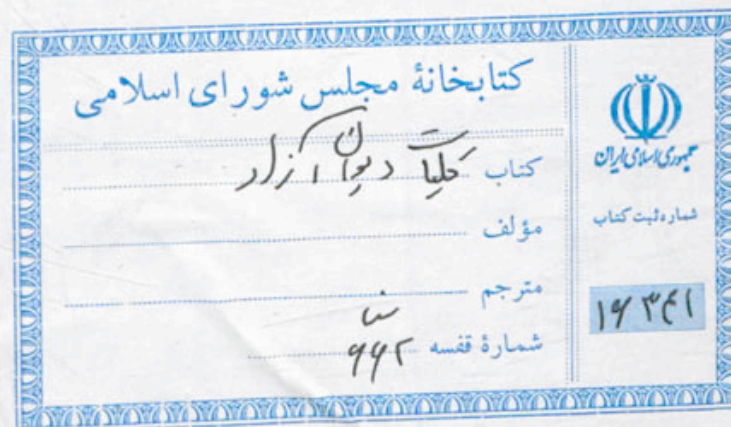 کتابخانهٔ مجلس شورای اسلامی
کتاب کلیات دیوان آزاد
مؤلف
مترجم
شمارهٔ قفسه ۶۶۲
جمهوری اسلامی ایران
شماره ثبت کتاب
۱۶۳۴۱